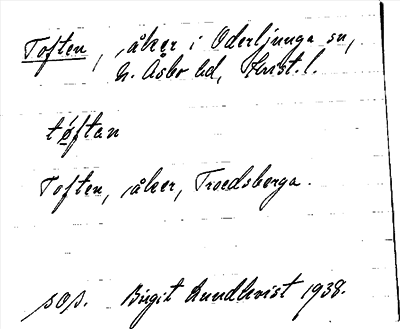 Toften, åker i Oderljunga sn,
N. Åsbo hd, Krist. l.
tǿftan
Toften, åker, Troedsberga.
pop. Birgit Lundkvist 1938.